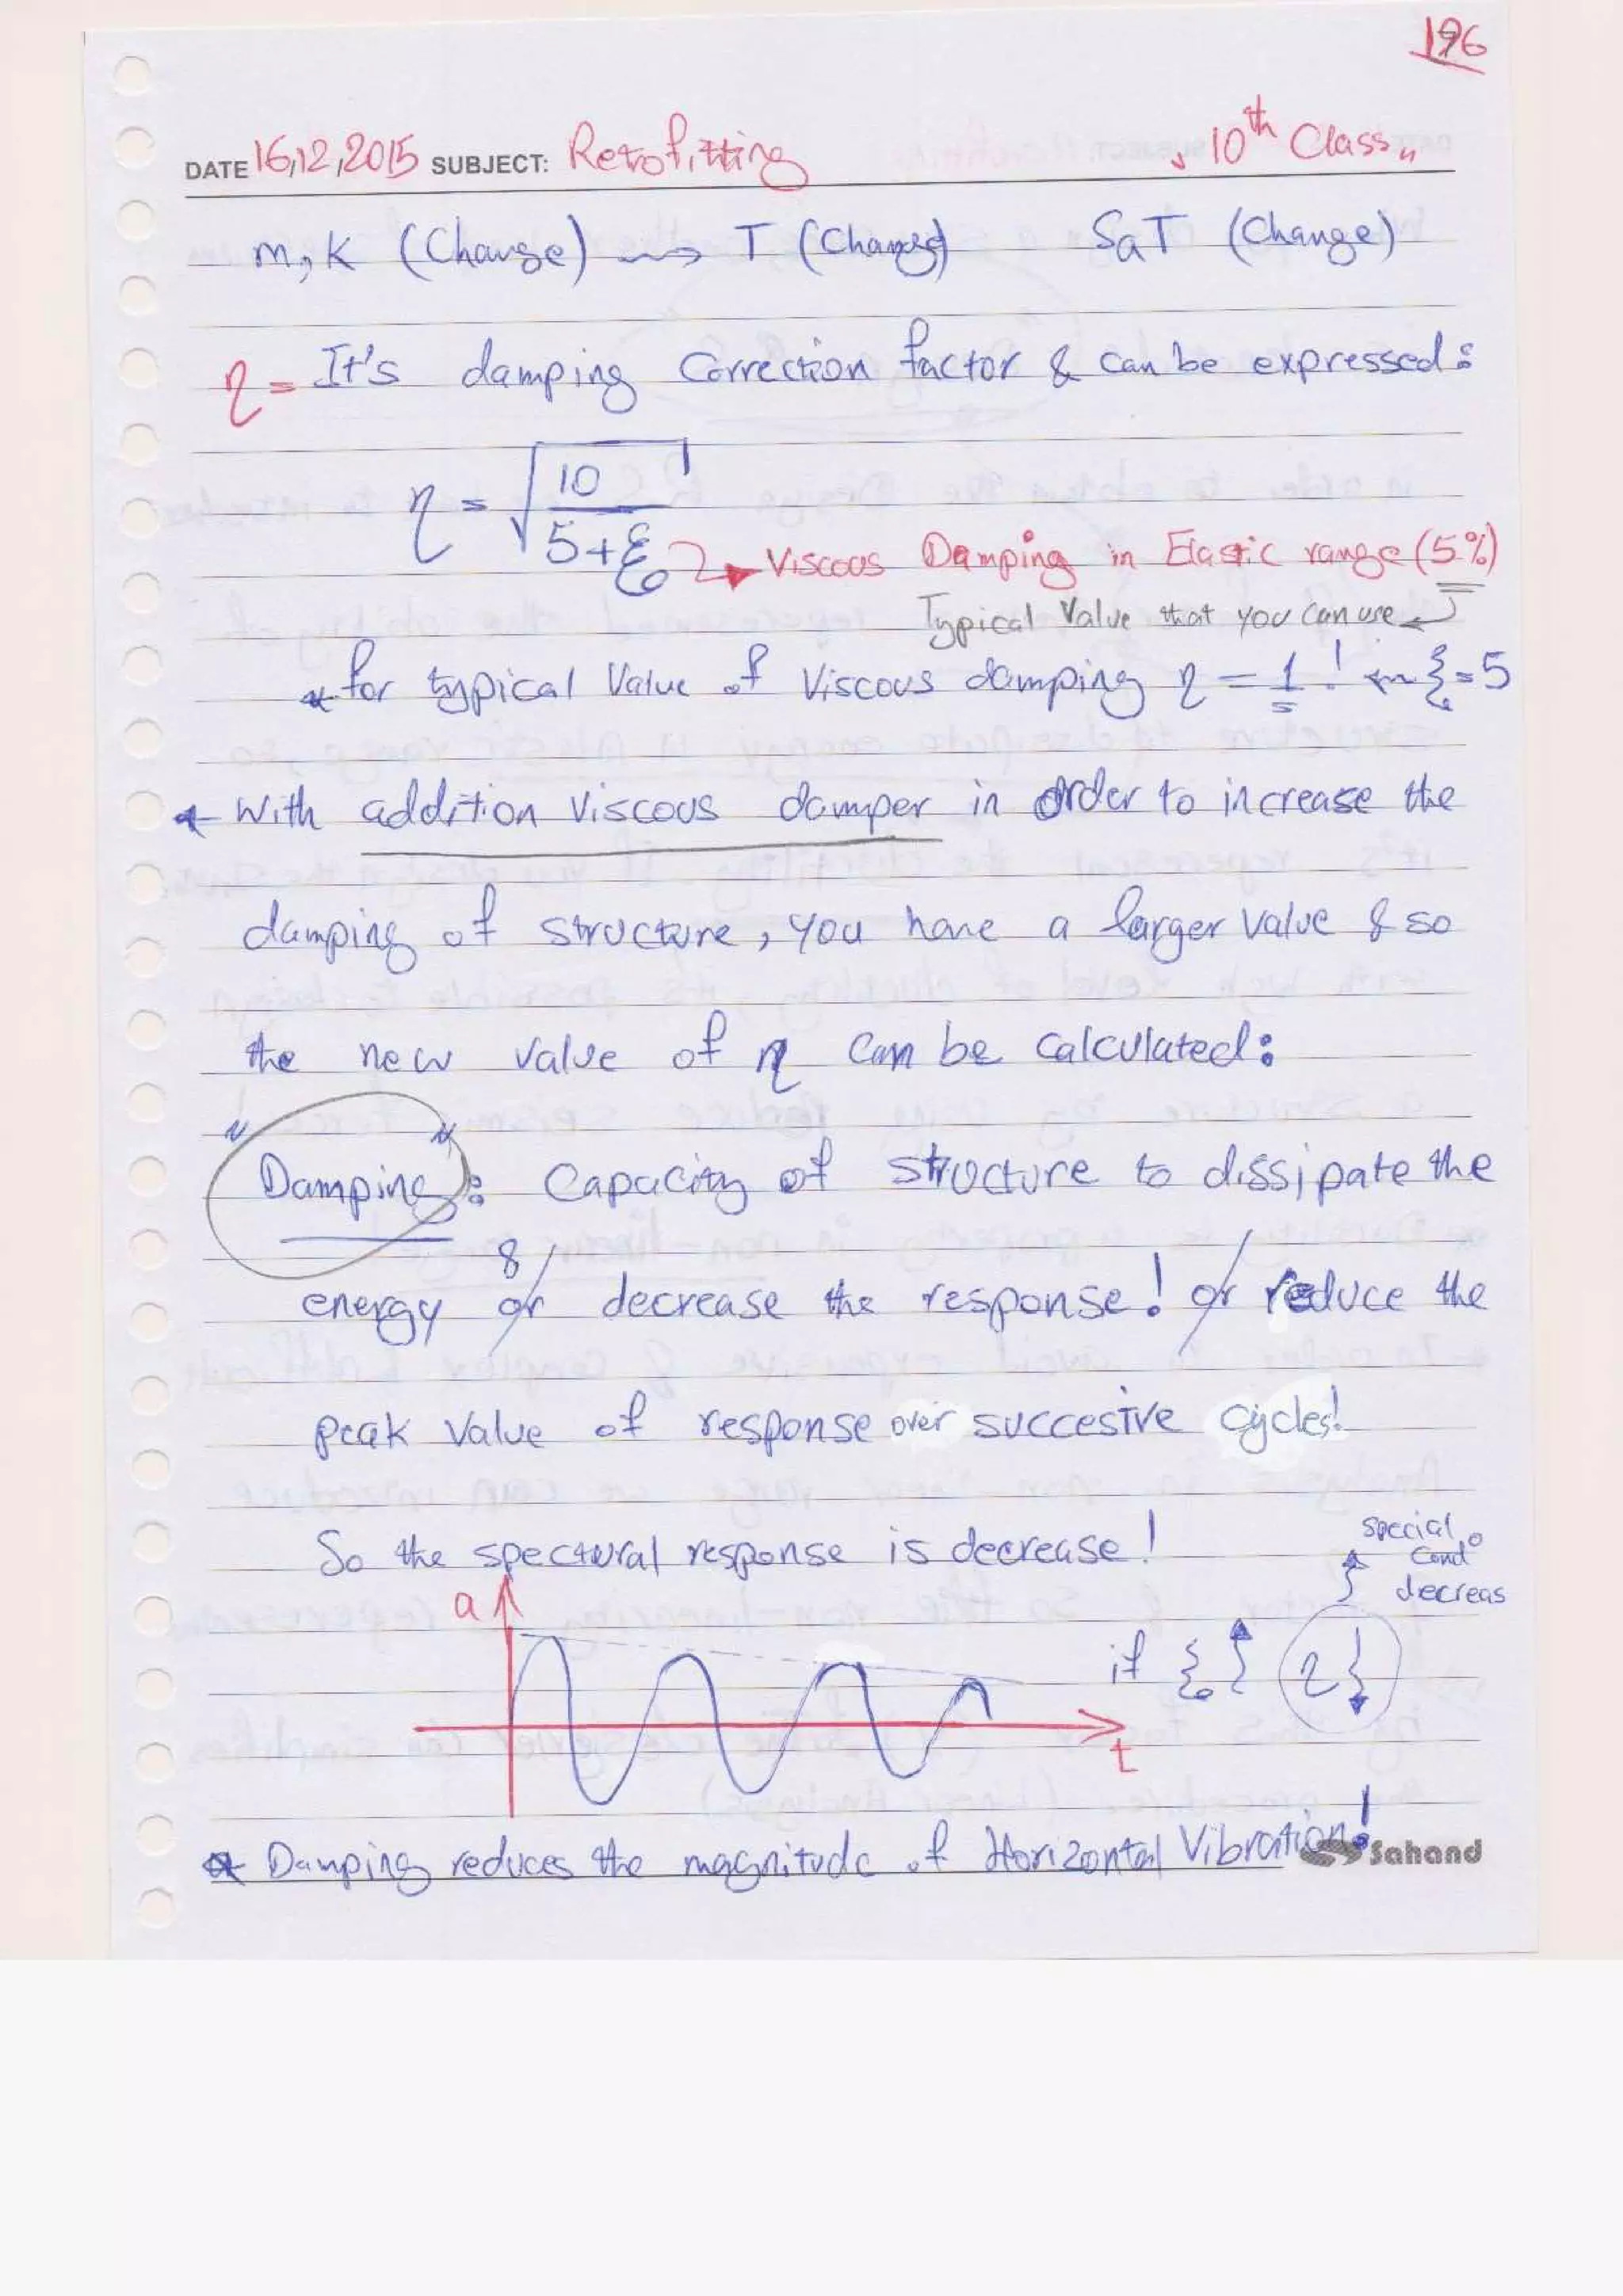 196
DATE 16,12,2015 SUBJECT: Retrofitting 10th Class
m, K (Change) ⟿ T (Change) SaT (Change)
η = It's damping Correction factor & can be expressed:
η = √(10 / (5+ξ)) → Viscous Damping in Elastic range (5%)
Typical Value that you can use
* for typical Value of Viscous damping η = 1 ! ← ξ = 5
* With addition Viscous damper in order to increase the
damping of structure, you have a larger value & so
the new value of η can be calculated:
"Damping": Capacity of structure to dissipate the
energy or & decrease the response! or reduce the
peak value of response over succesive cycles!
So the spectural response is decrease!
special cond
decreas
a
if ξ ↑ η ↓
t
* Damping reduces the magnitude of Horizontal Vibration!
Sahand